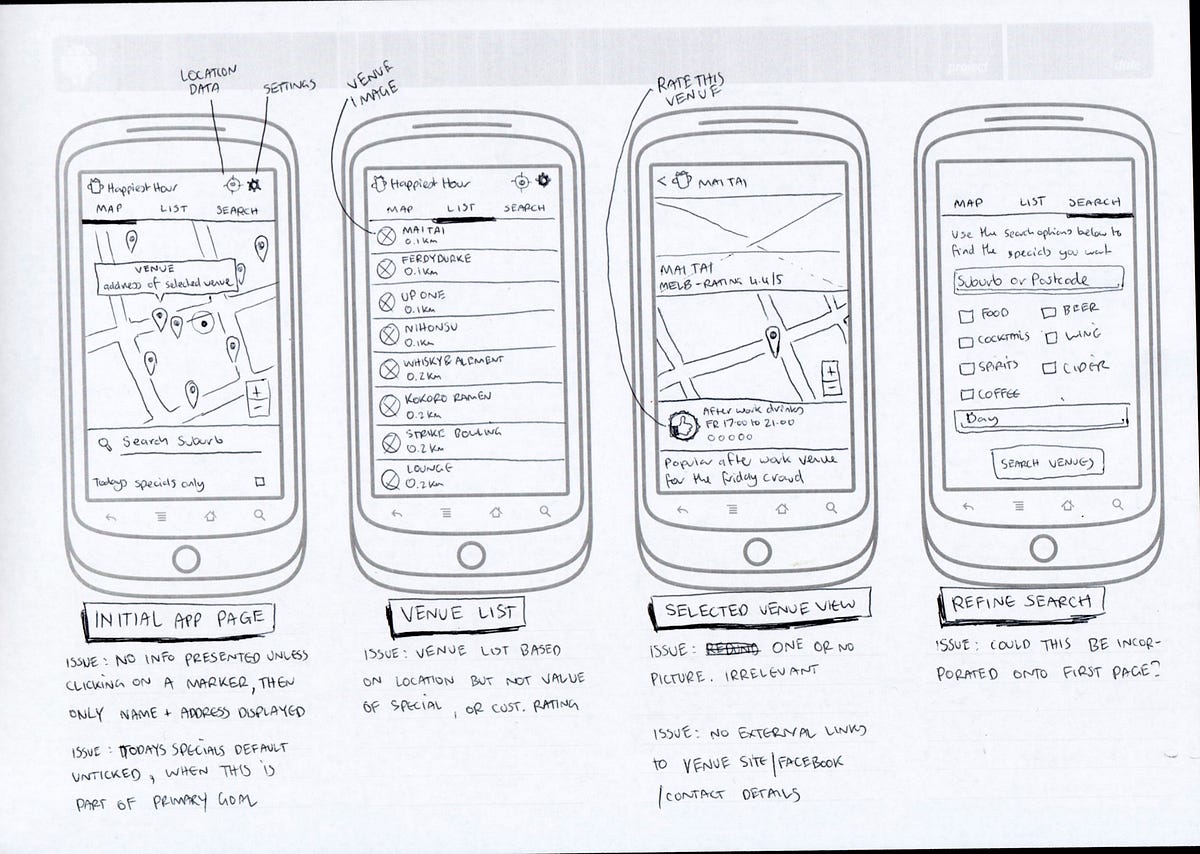 project
date
LOCATION
DATA
SETTINGS
VENUE
IMAGE
RATE THIS
VENUE
Happiest Hour
MAP LIST SEARCH
VENUE
address of selected venue
+
-
Search Suburb
Todays specials only
INITIAL APP PAGE
ISSUE: NO INFO PRESENTED UNLESS
CLICKING ON A MARKER, THEN
ONLY NAME + ADDRESS DISPLAYED
ISSUE: TODAYS SPECIALS DEFAULT
UNTICKED, WHEN THIS IS
PART OF PRIMARY GOAL
Happiest Hour
MAP LIST SEARCH
MAITAI
0.1km
FERDYDURKE
0.1km
UP ONE
0.1km
NIHONSU
0.1km
WHISKY & ALEMENT
0.2km
KOKORO RAMEN
0.2km
STRIKE BOWLING
0.2km
LOUNGE
0.2km
VENUE LIST
ISSUE: VENUE LIST BASED
ON LOCATION BUT NOT VALUE
OF SPECIAL, OR CUST. RATING
< MAITAI
MAITAI
MELB - RATING 4.4/5
+
-
After work drinks
FRI 17:00 to 21:00
Popular after work venue
for the friday crowd
SELECTED VENUE VIEW
ISSUE: ONE OR NO
PICTURE. IRRELEVANT
ISSUE: NO EXTERNAL LINKS
to VENUE SITE/FACEBOOK
/CONTACT DETAILS
MAP LIST SEARCH
Use the search options below to
find the specials you want
Suburb or Postcode
FOOD BEER
COCKTAILS WINE
SPIRITS CIDER
COFFEE
Day
SEARCH VENUES
REFINE SEARCH
ISSUE: COULD THIS BE INCOR-
PORATED ONTO FIRST PAGE?